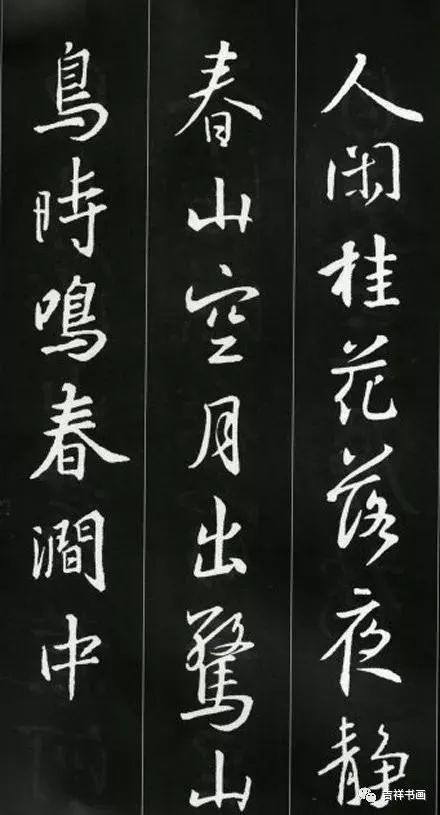 人闲桂花落夜静
春山空月出驚山
鳥時鳴春澗中
吉祥书画